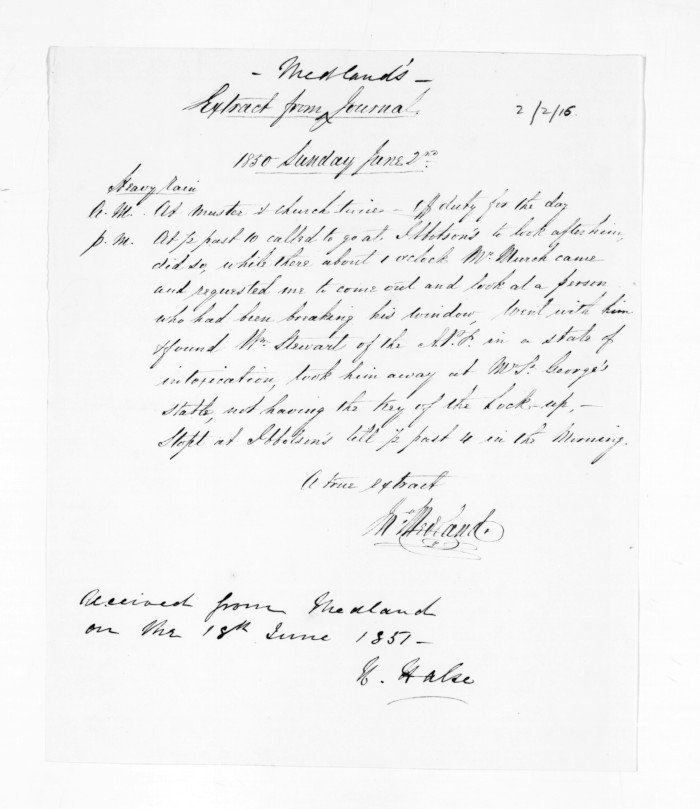 - Medland's -
Extract from Journal.
2/2/16.
1850 Sunday June 2nd
Heavy rain
A.M. At muster & church twice - off duty for the day
p.m. At ½ past 10 called to go at Ibbotson's to look after him,
did so, while there about 1 o'clock Mr. Murch came
and requested me to come out and look at a person
who had been breaking his window, Went with him
& found Wm. Stewart of the A.P.F. in a state of
intoxication, took him away at Mr. St. George's
stable, not having the key of the Lock-up, -
Stopt at Ibbotson's till ½ past 4 in the Morning.
A true extract
Medland.
Received from Medland
on the 18th June 1851 -
H. Halse